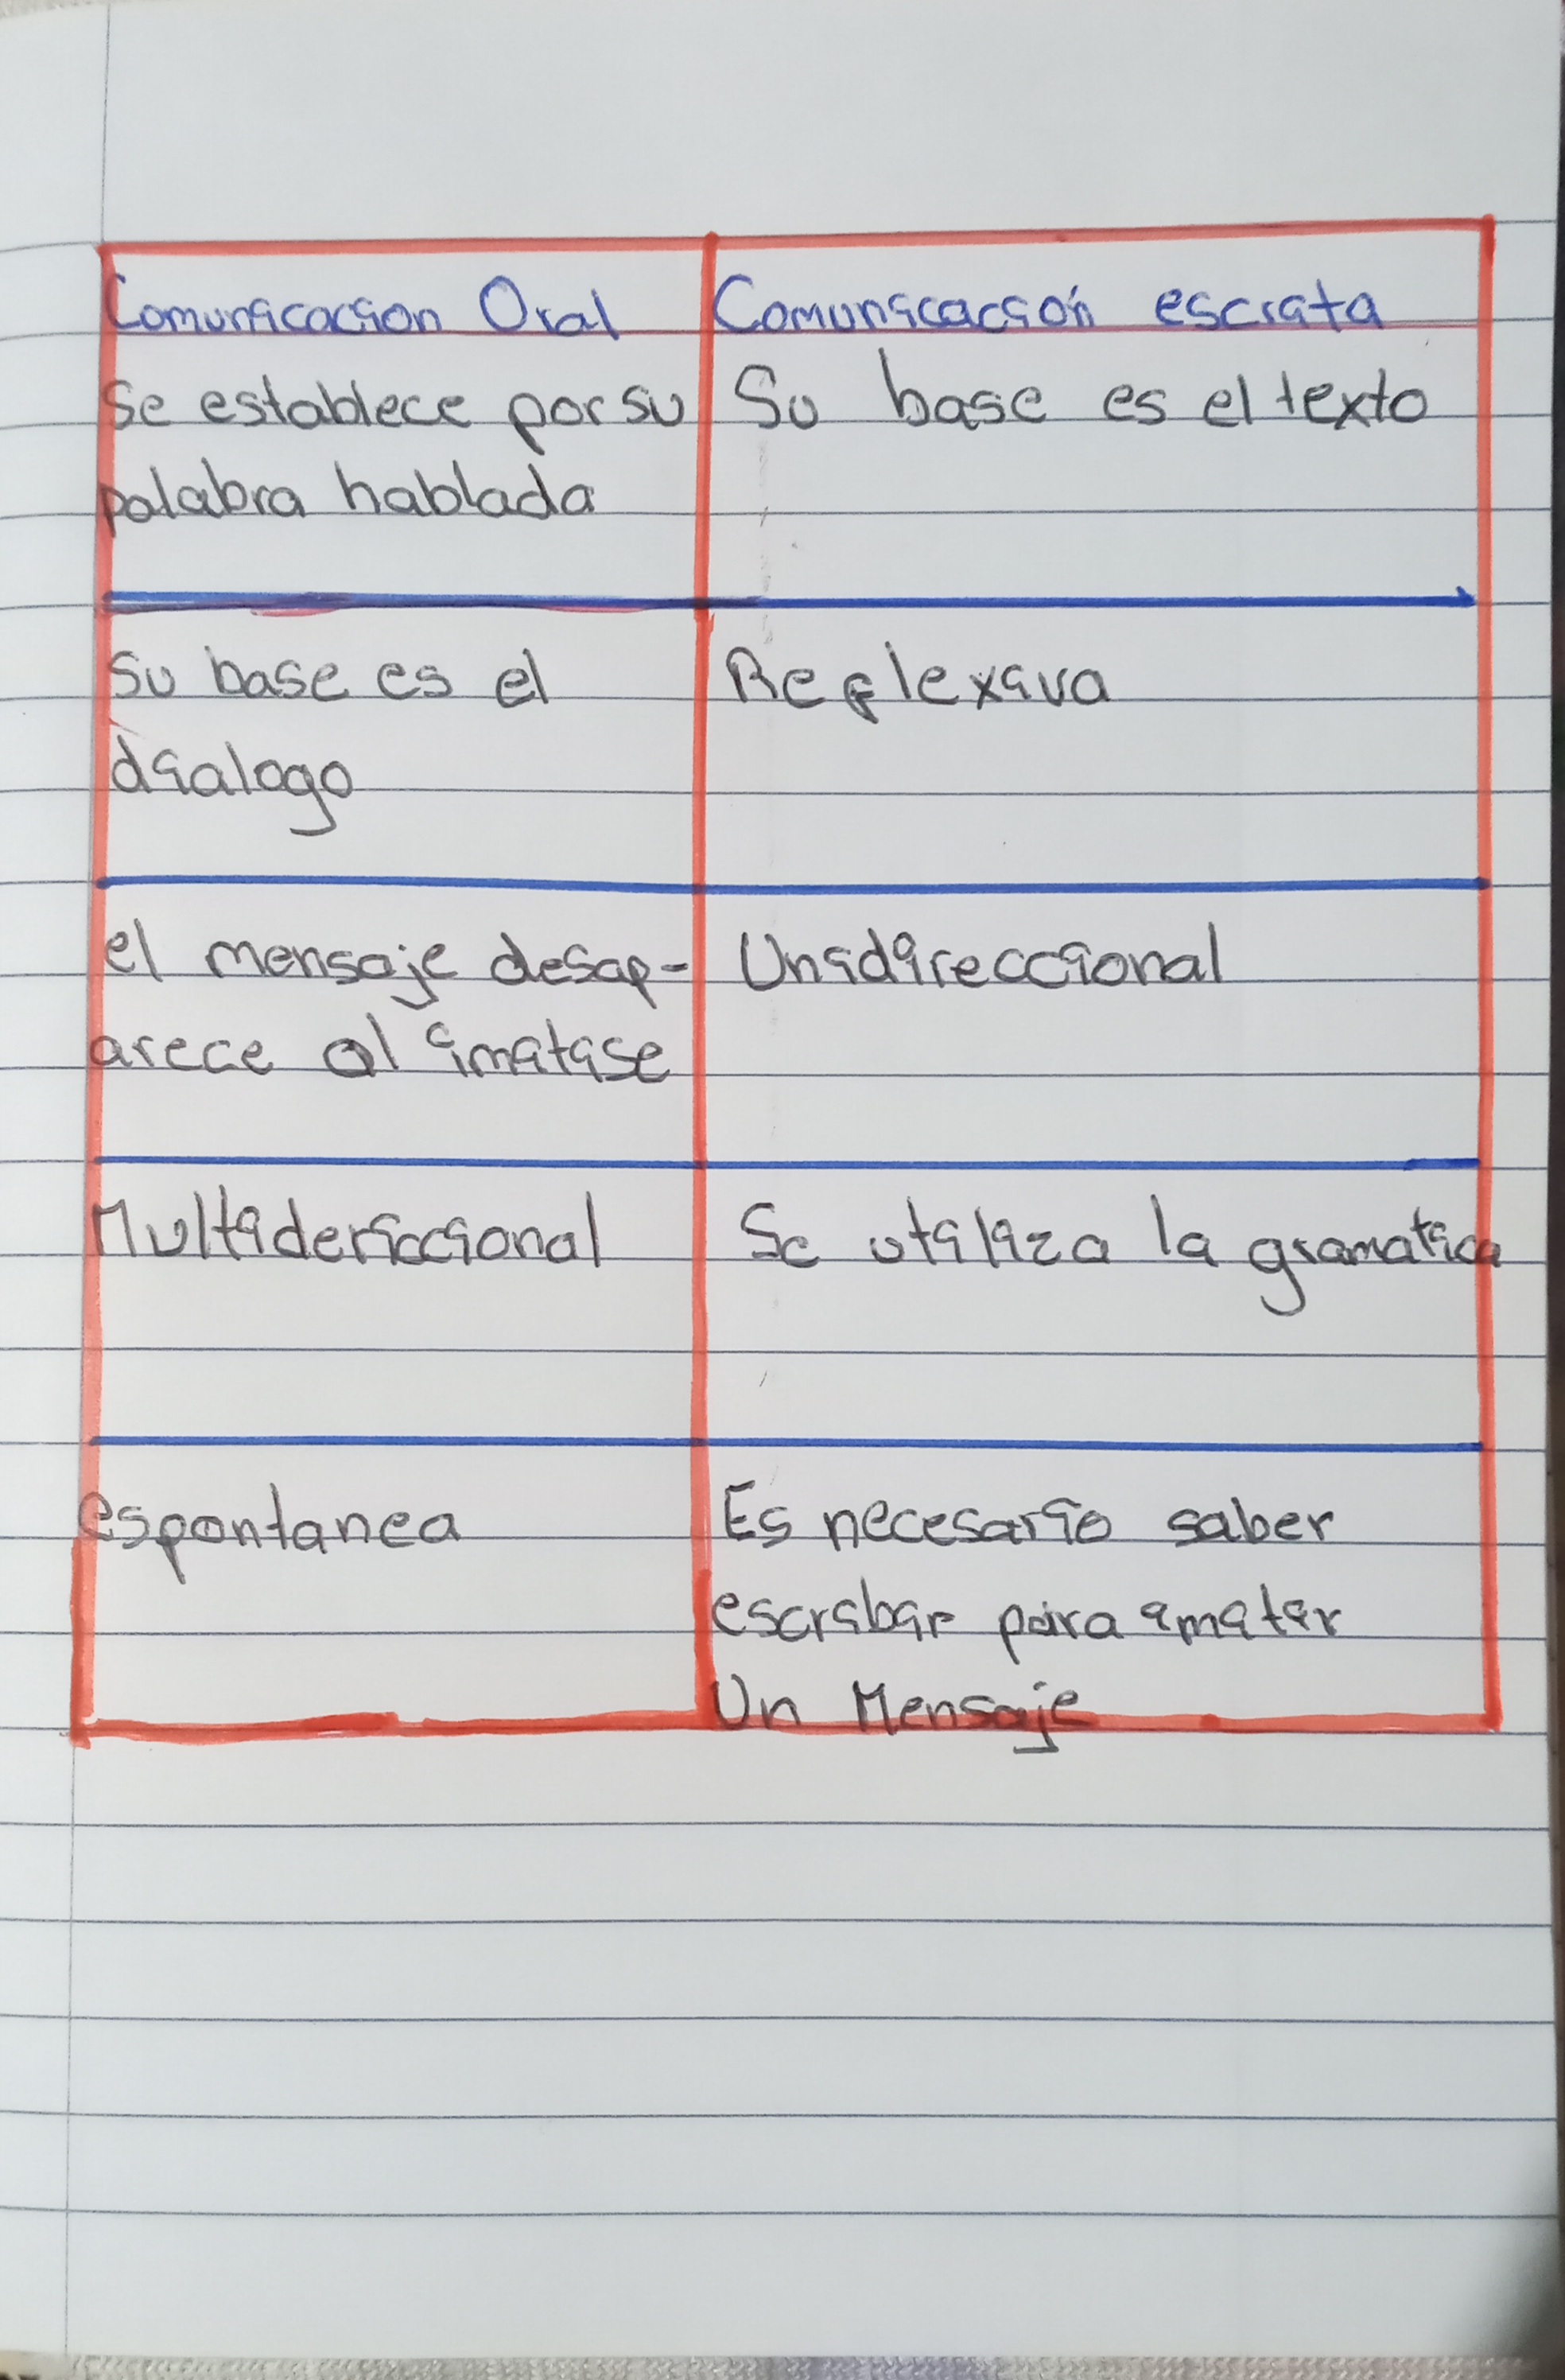 Comunicacion Oral
Comunicación escrita
Se establece por su
palabra hablada
Su base es el texto
Su base es el
dialogo
Reflexiva
el mensaje desap-
arece al imitise
Unidireccional
Multidericcional
Se utiliza la gramatica
espontanea
Es necesario saber
escribir para imitir
Un Mensaje